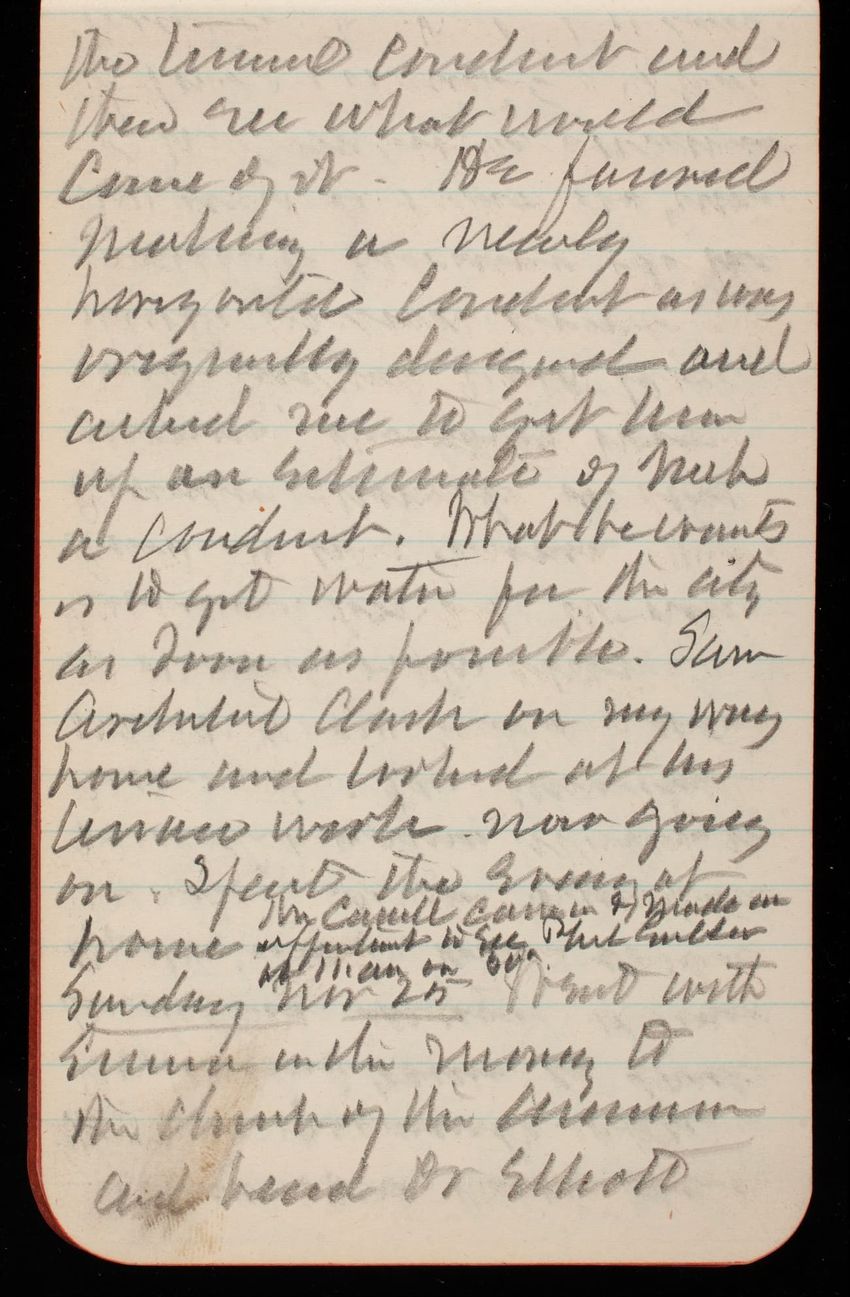 the tunnel conduit and
then see what would
come of it. He favored
making a newly
horizontal conduit as was
originally designed and
asked me to get him
up an estimate of such
a conduit. What he wants
is to get water for the city
as soon as possible. Saw
Architect Clark on my way
home and looked at his
terrace work now going
on. Spent the evening at
home Mr Carroll came in & made an
appointment to see
at 11 am on
Sunday Nov 25 Went with
Emma in the morning to
the Church of the Ascension
and heard Dr Elliott